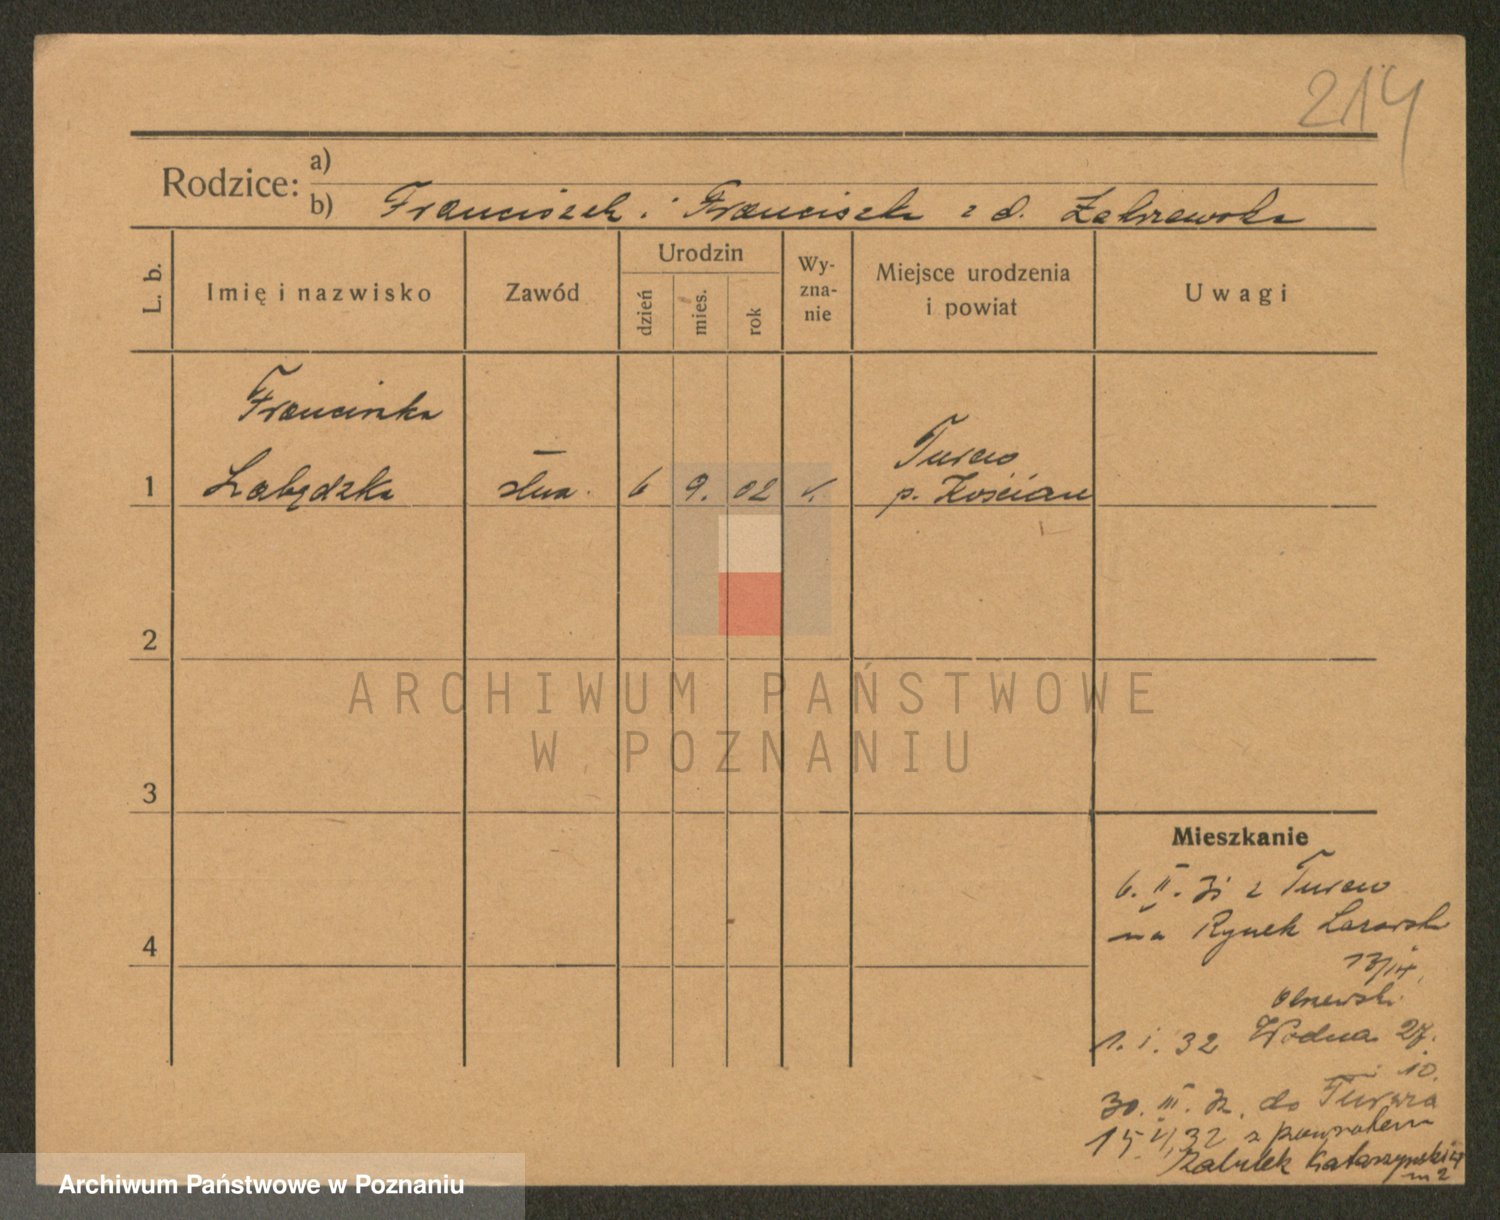 214
Rodzice: a)
b) Franciszek i Franciszka z d. Zakrzewska
L. b.
Imię i nazwisko
Zawód
Urodzin
dzień
mies.
rok
Wy-
zna-
nie
Miejsce urodzenia
i powiat
Uwagi
Franciszka
1 Łabędzka
służ.
6 9. 02 k.
Turew
p. Kościan
2
3
4
Mieszkanie
z Turew
na Rynek Łazarski
13/14
1. I. 32 Wodna 27.
10.
30. III. 32. do Turwia
15. 32 z powrotem
Zaułek Katarzyński 4
m 2
ARCHIWUM PAŃSTWOWE
W POZNANIU
Archiwum Państwowe w Poznaniu